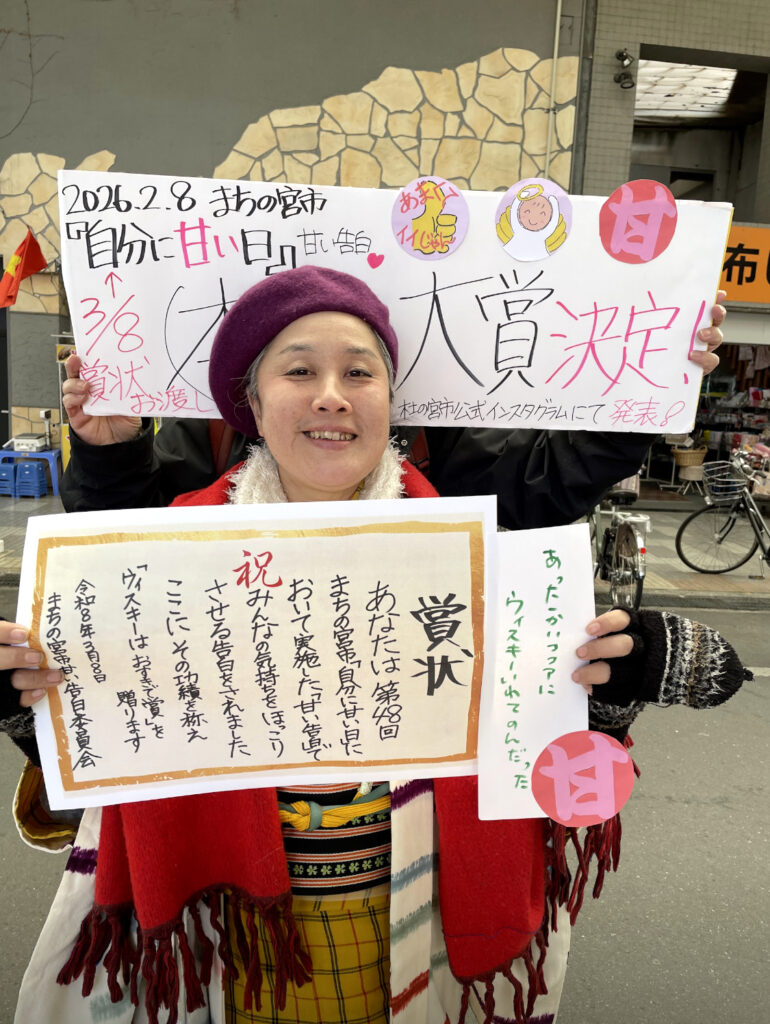 2026.2.8 まちの宮市
『自分に甘い日』甘い告白
3/8
賞状
お渡し
大賞決定!
杜の宮市公式インスタグラムにて発表
イイじゃん
甘
布
賞状
祝
あなたは第48回
まちの宮市「自分に甘い日に
おいて実施した「甘い告白」で
みんなの気持ちをほっこり
させる告白をされました
ここにその功績を称え
「ウィスキーは
賞」を
贈ります
令和8年3月8日
まちの宮市甘い告白委員会
あったかいココアに
ウィスキーいれてのんだった
甘